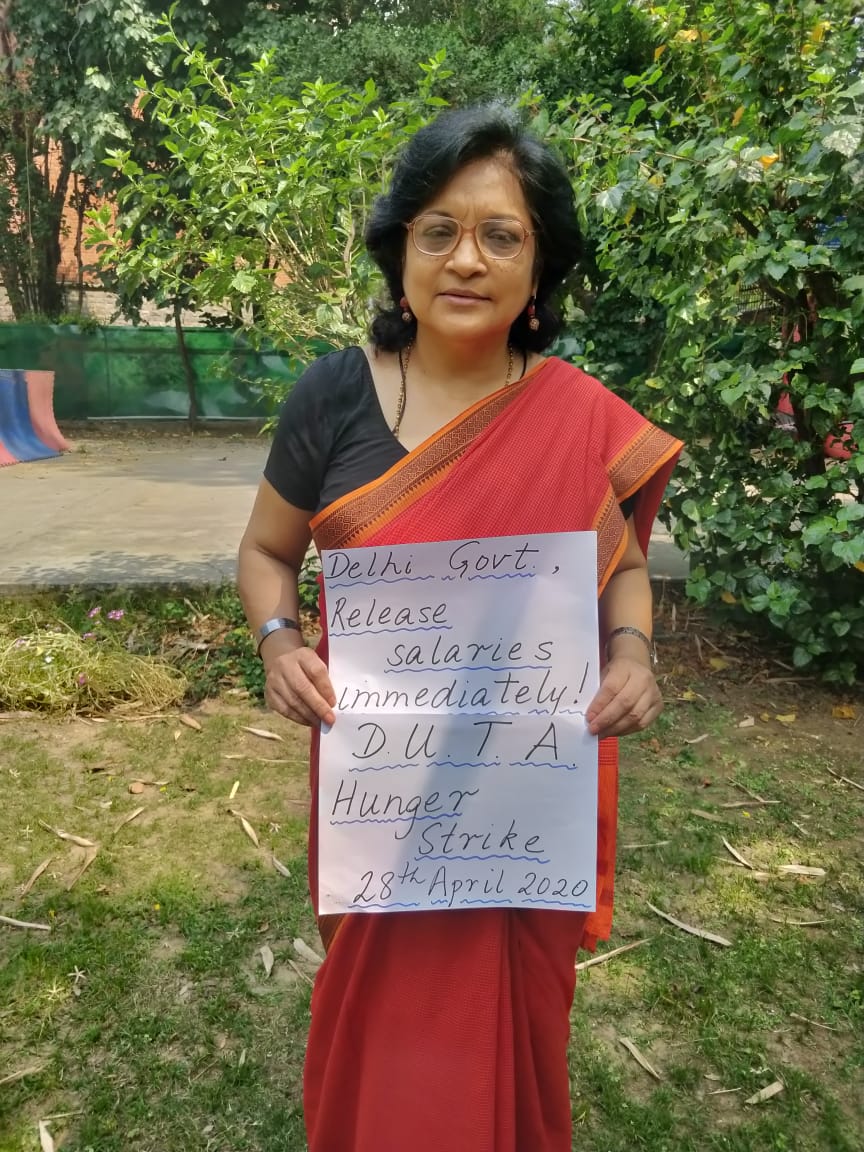 Delhi Govt.,
Release
salaries
immediately!
D.U.T.A.
Hunger
Strike
28th April 2020